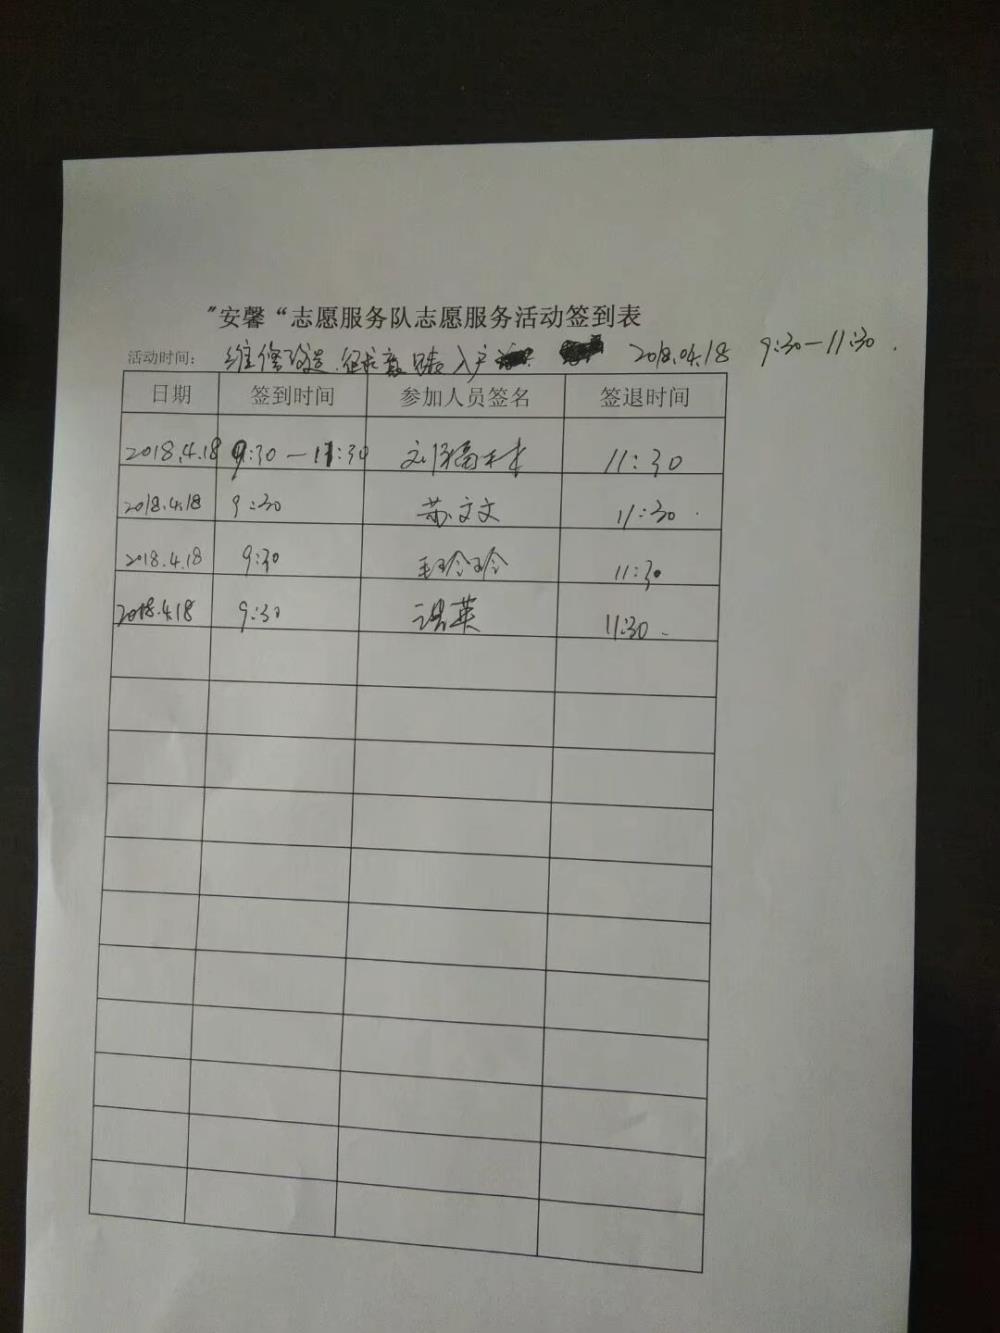 "安馨“志愿服务队志愿服务活动签到表
活动时间: 维修改造.征求意见表入户 2018.04.18 9:30—11:30.
日期 签到时间 参加人员签名 签退时间
2018.4.18 9:30—11:30 11:30
2018.4.18 9:30 苏文文 11:30.
2018.4.18 9:30 毛玲玲 11:30
2018.4.18 9:30 洪英 11:30.